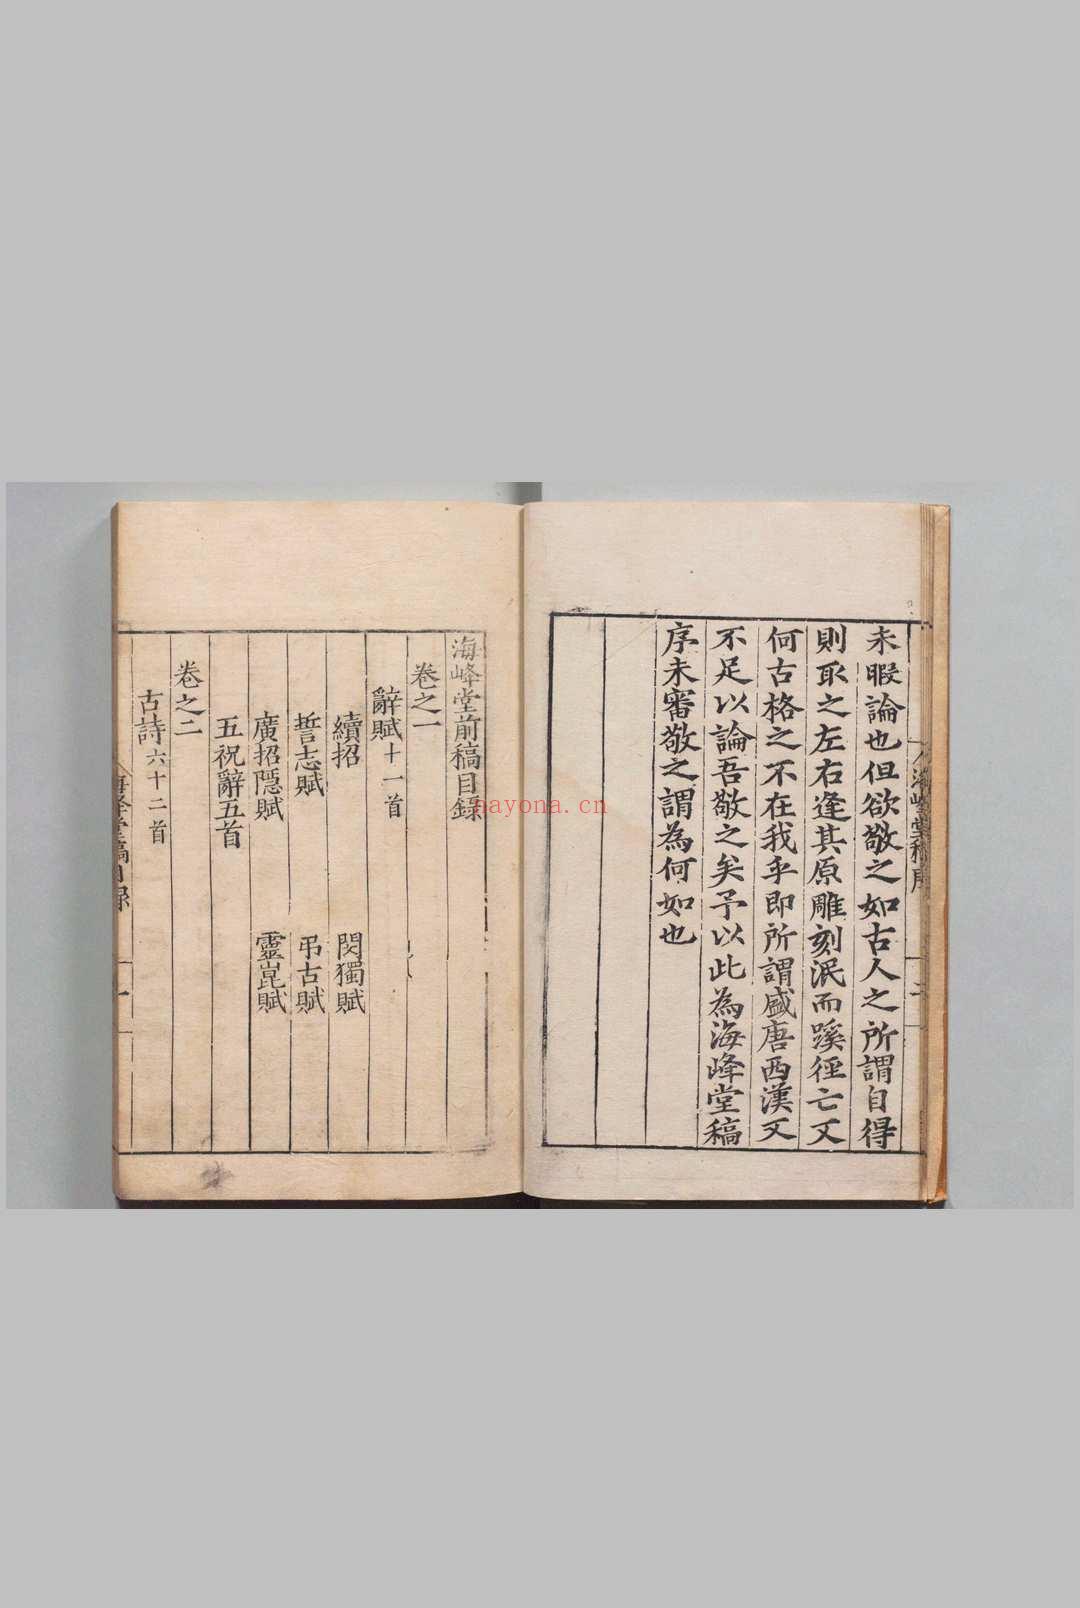 未暇論也但欲敬之如古人之所謂自得
則取之左右逢其原雕刻泯而蹊徑亡又
何古格之不在我乎即所謂盛唐西漢又
不足以論吾敬之矣予以此為海峰堂稿
序未審敬之謂為何如也
海峰堂前稿目錄
卷之一
辭賦十一首
續招
閔獨賦
誓志賦
弔古賦
廣招隱賦
靈崑賦
五祝辭五首
卷之二
古詩六十二首
nayona.cn